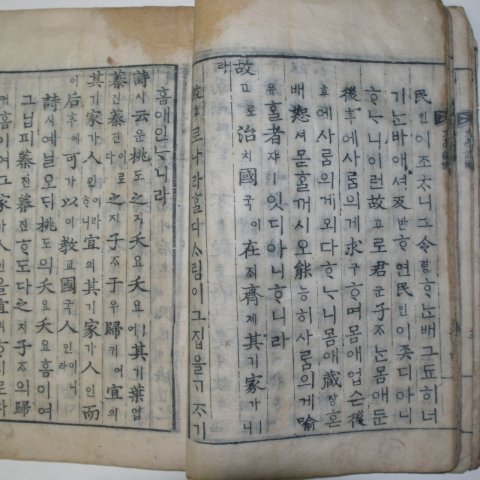 民민이조ᄎᆞ니그令령ᄒᆞᄂᆞᆫ배그됴히너
기ᄂᆞᆫ바애셔反반ᄒᆞ면民민이좃디아니
ᄒᆞᄂᆞ니이런故고로君군子ᄌᆞᄂᆞᆫ몸애둔
後후에사ᄅᆞᆷ의게求구ᄒᆞ며몸애업슨後
후에사ᄅᆞᆷ의게외다ᄒᆞᄂᆞ니몸애藏장ᄒᆞᆫ
배恕셔몯ᄒᆞᆯ거시오能능히사ᄅᆞᆷ의게喩
유ᄒᆞᆯ者쟈ㅣ잇디아니ᄒᆞ니라
故고로治치國국이在ᄌᆡ齊졔其기家가ㅣ니
라
故고로나라ᄒᆞᆯ다ᄉᆞ림이그집을ᄀᆞᄌᆞ기
홈애인ᄂᆞ니라
詩시云운桃도之지夭요夭요ㅣ여其기葉엽
蓁진蓁진이로다之지子ᄌᆞ于우歸귀여宜의
其기家가人인이라ᄒᆞ니宜의其기家가人인而
이后후에可가以이敎교國국人인이니라
詩시예닐오ᄃᆡ桃도의夭요夭요홈이여
그닙피蓁진蓁진ᄒᆞ도다之지子ᄌᆞ의歸
귀홈이여그家가人인을宜의히ᄒᆞ리로다